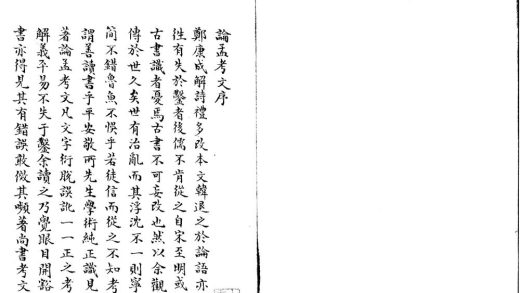 論孟考文序
鄭康成解詩禮多改本文韓退之於論語亦
徃有失於鑿者後儒不肯從之自宋至明或
古書識者憂焉古書不可妄改也然以余觀
傳於世久矣世有治亂而其浮沈不一則寧
简不錯魯魚不悞乎若徒信而從之不知考
謂善讀書乎平安敬所先生學術純正識見
著論孟考文凡文字衍脫誤訛一一正之考
解義平易不失于鑿余讀之乃覺眼目開豁
書亦得見其有錯誤敢傚其嚬著尚書考文